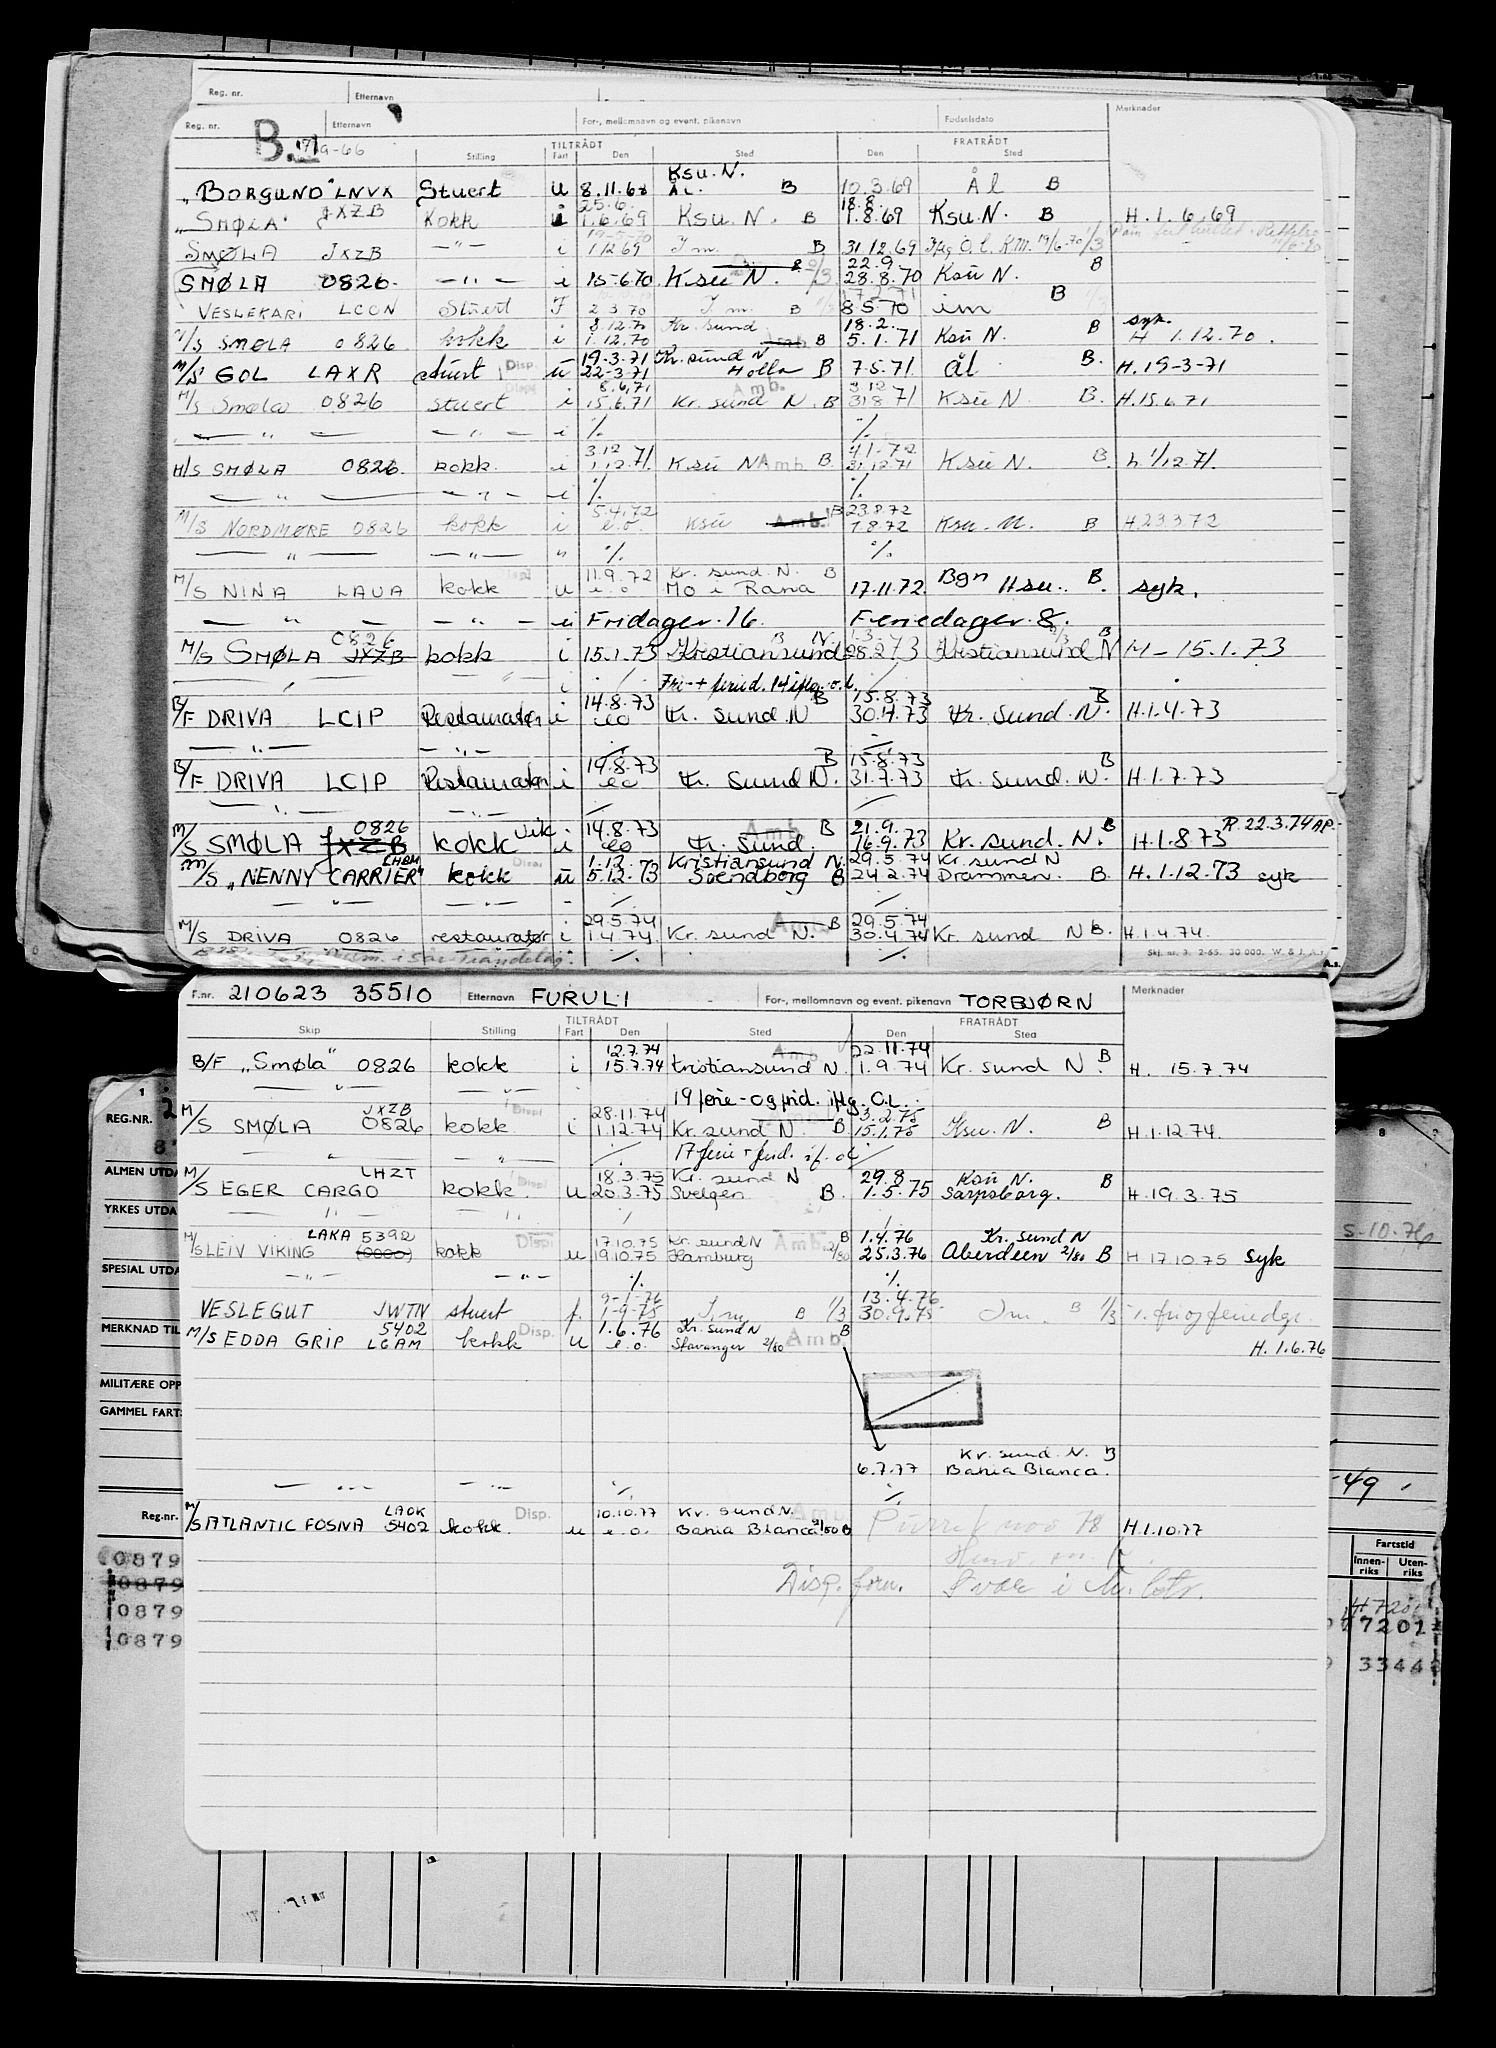 Reg. nr. Etternavn
Reg. nr. Etternavn For-, mellomnavn og event. pikenavn Fødselsdato Merknader
B. 9-66
TILTRÅDT FRATRÅDT
Stilling Fart Den Sted Den Sted
Ksu. N.
"BORGUND" LNVX Stuert u 8.11.68 ÅL. B 10.3.69 Ål B
25.6. 18.8.
"SMØLA" JXZB Kokk i 1.6.69 Ksu. N. B 1.8.69 Ksu. N. B H. 1. 6. 69
SMØLA JXZB -"- i 1.12.69 I m. B 31.12.69
22.9.
SMØLA 0826. -"- i 15.6.70 Ksu N. 28.8.70 Ksu N. B
VESLEKARI LCCN Stuert F 2.3.70 I m. B 8.5.70 im B
3.12.70 Kr. sund 18.2. syk.
M/S SMØLA 0826 kokk i 1.12.70 Amb B 5.1.71 Ksu N. B H 1.12.70.
19-3-71 Kr. sund N
M/S GOL LAXR stuert Disp. u 22-3-71 Holla B 7.5.71 ål B. H. 19-3-71
8.6.71 Amb. 3.12
M/S Smøla 0826 stuert i 15.6.71 Kr. sund N. B 31.8.71 Ksu N. B. H. 15.6.71
— " — — " — i % %
3.12.71 4.1.72
M/S SMØLA 0826. kokk. i 1.12.71. Ksu N Amb B. 31.12.71 Ksu N. B. h 1/12.71.
— " — — " — i % %
5.4.72 23.8.72
M/S NORDMØRE 0826 kokk i e.o. Ksu Amb. B 7.8.72 Ksu. N. B H. 23.3.72
— " — — " — " % %
11.9.72 Kr. sund. N. B
M/S NINA LAUA kokk u e.o Mo i Rana 17.11.72. Bgn Hsu. B. syk.
— " — — " — u Fridager. 16. Feriedager. 8.
0826
M/S SMØLA JXZB kokk i 15.1.73 Kristiansund N B 28.2.73 Kristiansund N B H - 15.1.73
Fri- + feried. 14 iflg. o.l.
14.8.73 B 15.8.73 B
B/F DRIVA LCIP Restauratør i eo Kr. Sund. N 30.4.73 Kr. Sund. N. H. 1.4.73
— " — — " —
14.8.73 B 15.8.73 B
B/F DRIVA LCIP Restauratør i eo Kr. Sund N. 31.7.73 Kr. Sund. N. H. 1.7.73
— " — — " —
0826 vik. 14.8.73 Amb B 21.9. B R. 22.3.74 AP.
M/S SMØLA JXZB kokk i eo Kr. Sund. 16.9.73 Kr. sund. N. H. 1.8.73
LHBM 1.12. Kristiansund N. 29.5.74 Kr. sund N
M/S "NENNY CARRIER" kokk Disp. u 5.12.73 Svendborg B 24.2.74 Drammen. B. H. 1.12.73 syk
— " — — " —
29.5.74 Amb B 29.5.74
M/S DRIVA 0826 restauratør i 1.4.74 Kr. sund N. 30.4.74 Kr. sund N B. H. 1.4.74.
% %
Skj. nr. 3. 2-65. 30 000. W. & J. A.s
F.nr. 210623 35510 Etternavn FURULI For-, mellomnavn og event. pikenavn TORBJØRN Merknader
TILTRÅDT FRATRÅDT
Skip Stilling Fart Den Sted Den Sted
12.7.74 Amb 22.11.74
B/F "Smøla" 0826 kokk i 15.7.74 Kristiansund N. 1.9.74 Kr. sund N. B H. 15.7.74
— " — — " — 19 ferie- og frid. iflg. O.L.
JXZB Disp 28.11.74 3.2.75
M/S SMØLA 0826 kokk. i 1.12.74 Kr. sund N. B 15.1.75 Ksu. N. B H. 1.12.74.
— " — — " — 17 ferie + frid. if. ol
LHZT 18.3.75 Kr. sund N 29.8 Ksu N.
M/S EGER CARGO kokk. u 20.3.75 Svelgen B. 1.5.75 Sarpsborg. B H. 19.3.75
— " — — " —
LAKA 5392 Disp 17.10.75 Kr. sund N Amb. B 1.4.76 Kr. sund N
M/S LEIV VIKING (0000) kokk u 19.10.75 Hamburg 2/80 25.3.76 Aberdeen 2/80 B H 17.10.75 syk
— " — — " — % %
9-1-76 13.4.76
VESLEGUT JWTN stuert f. 1-9-75 I m B 1/3 30.9.75 Im. B 1/3 i. fri og feriedgr.
5402 1.6.76 Kr. sund N B
M/S EDDA GRIP LGAM kokk Disp. u e.o. Stavanger 2/80 Amb H. 1.6.76
Kr. sund. N. B
6.7.77 Bahia Blanca.
— " — % %
LAOK 10.10.77 Kr. sund N.
M/S ATLANTIC FOSNA 5402 kokk. Disp. u e.o. Bahia Blanca 2/80 B Amb Purret nov 78 H. 1.10.77
Disp. forn. Svar i
1
REG.NR. 2
8
ALMEN UTDA
YRKES UTDA
SPESIAL UTDA
MERKNAD TIL
MILITÆRE OPP
GAMMEL FARTS
Reg.nr.
0879
0879
0879
0879
8
5.10.76
-49
Fartstid
Innen-riks Uten-riks
7201
3344